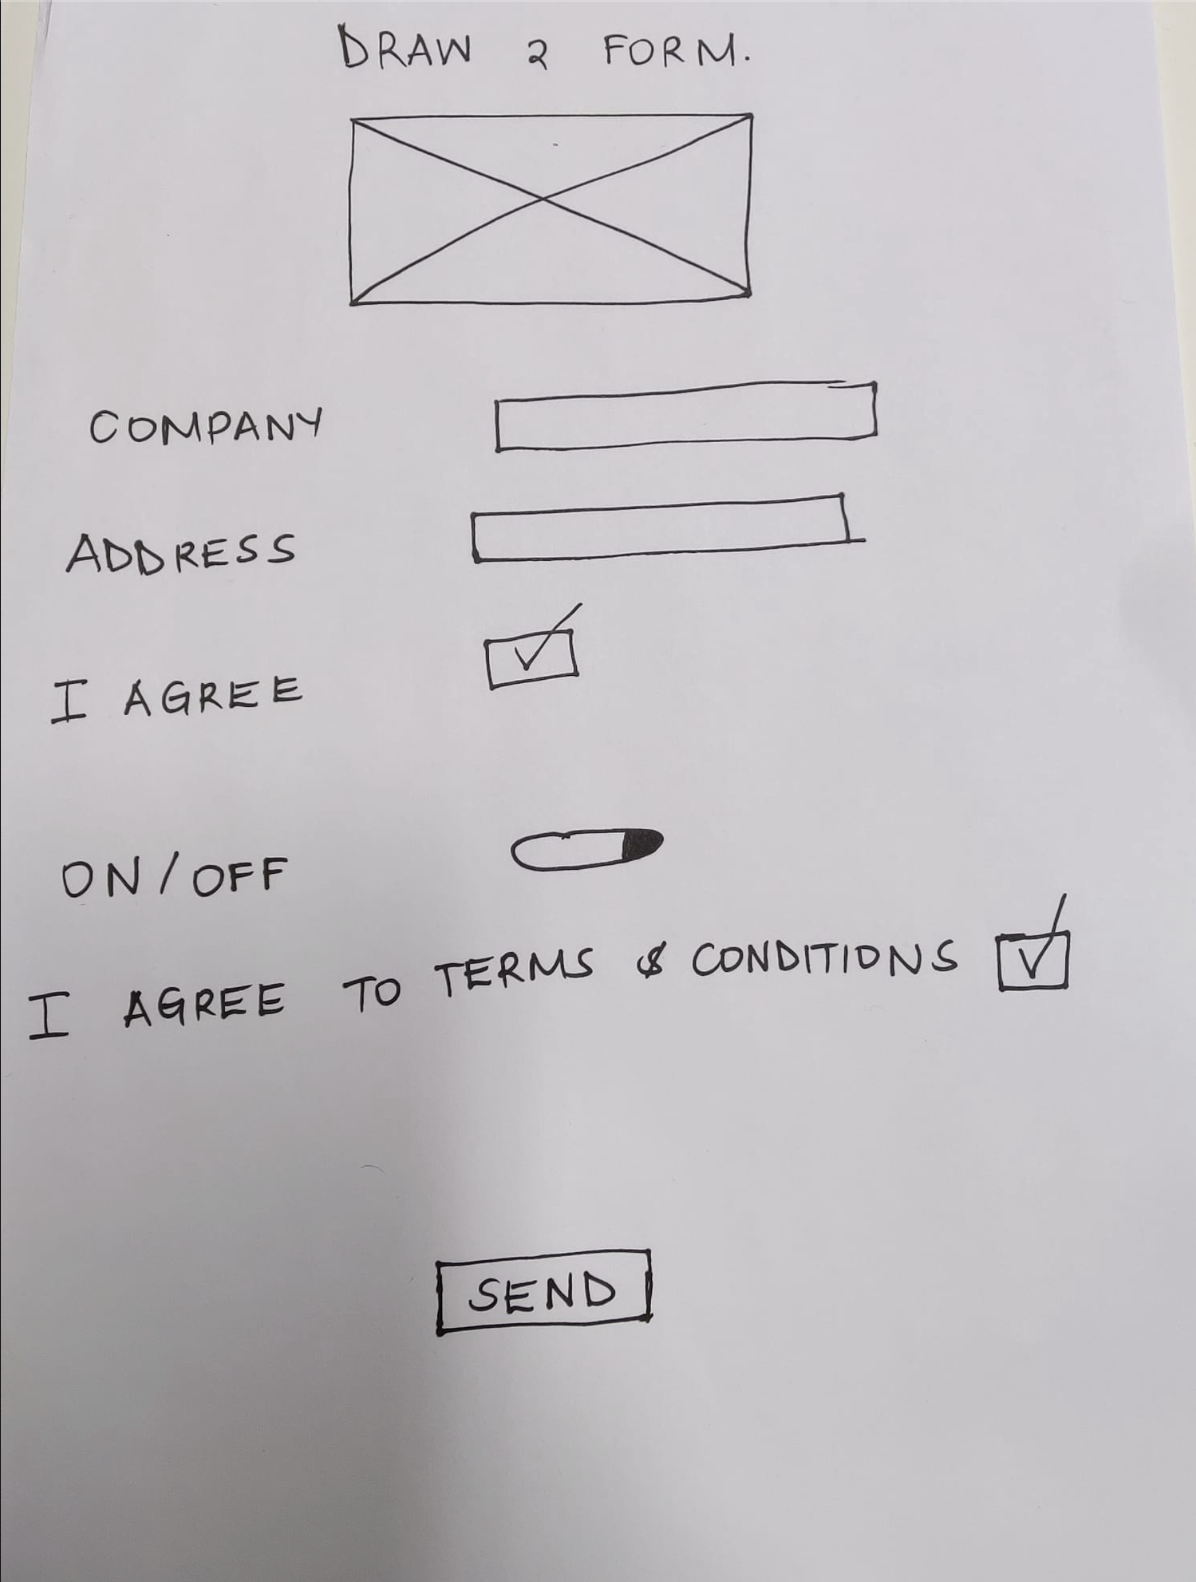 DRAW 2 FORM.
COMPANY
ADDRESS
I AGREE
ON/OFF
I AGREE TO TERMS & CONDITIONS
SEND